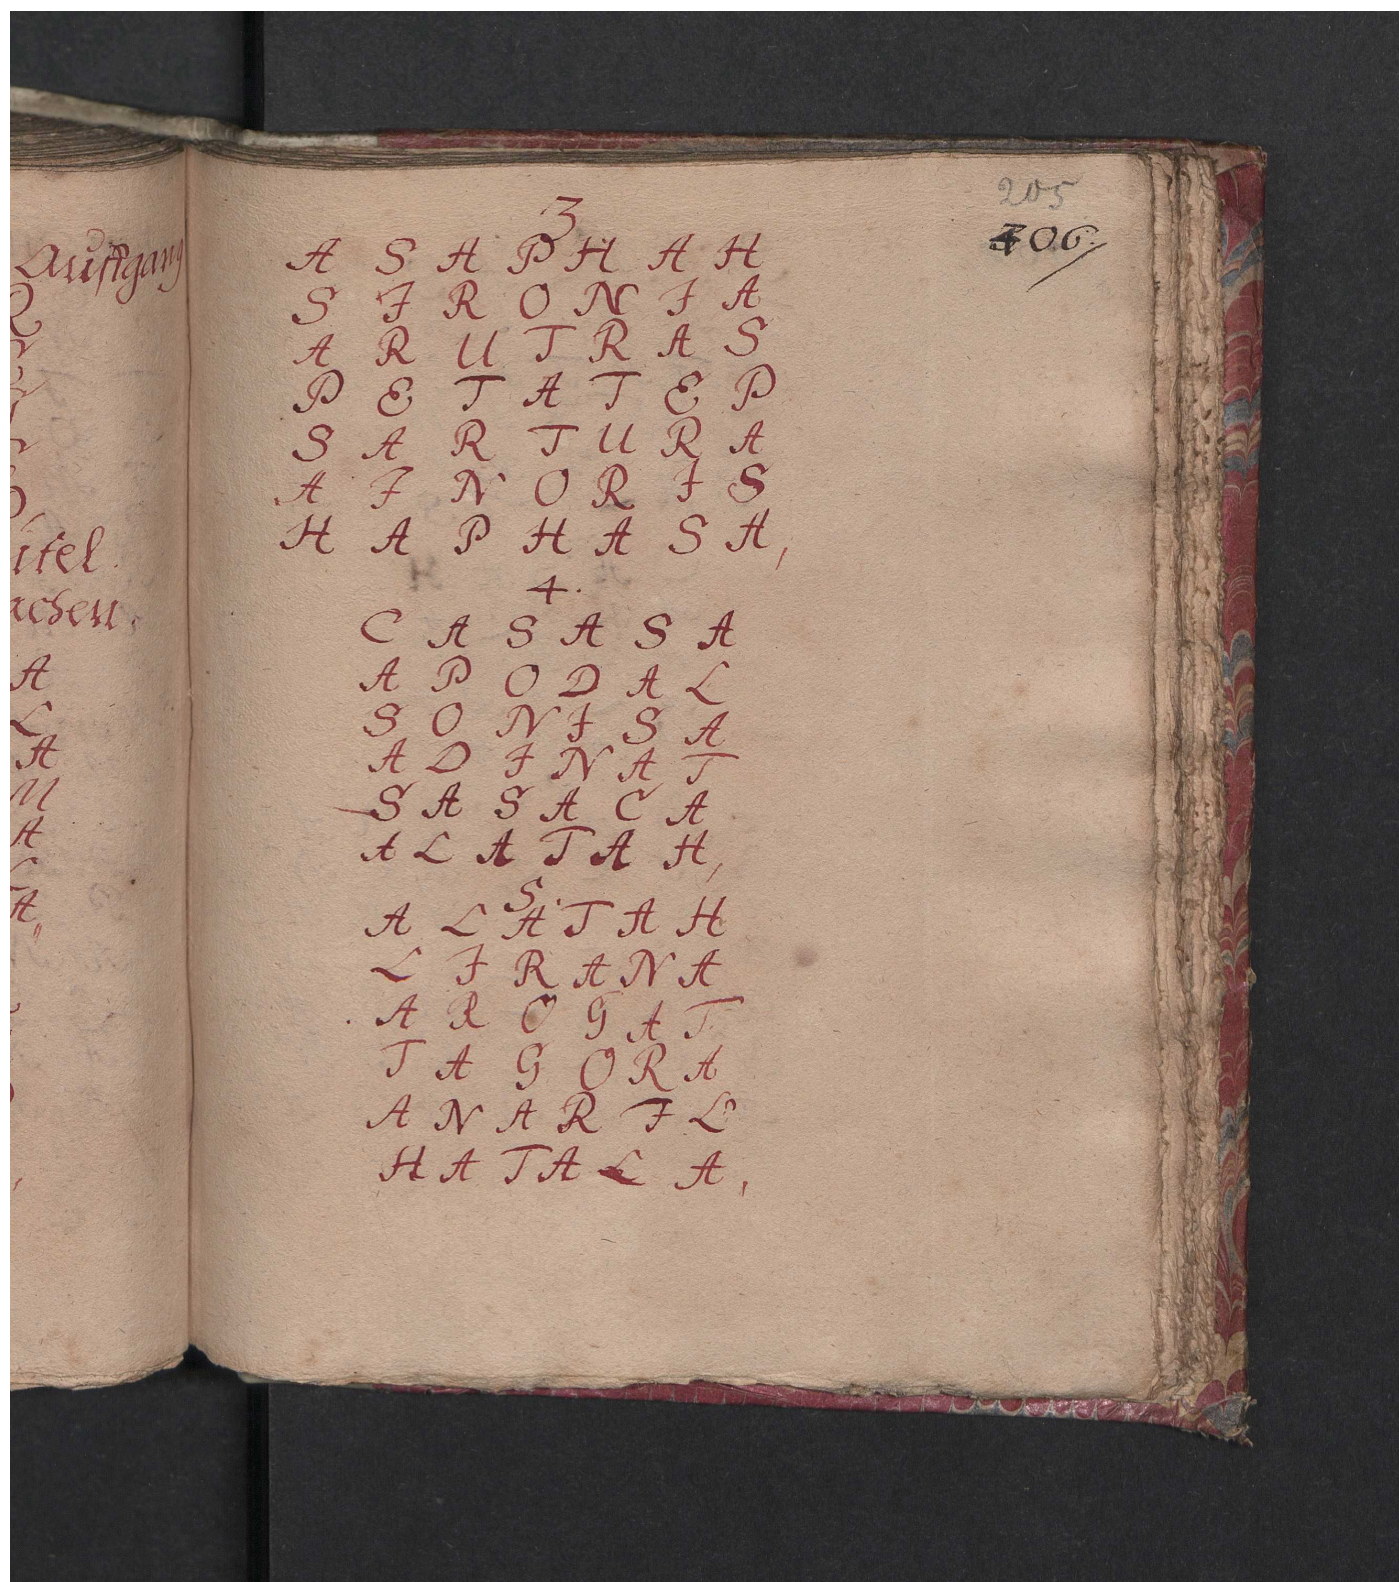 Auffgang
itel.
achen.
A
L
A
M
A
A,,
205
406.
3
A S A P H A H
S I R O N I A
A R U T R A S
P E T A T E P
S A R T U R A
A I N O R I S
H A P H A S A,
4.
C A S A S A
A P O D A L
S O N I S A
A D I N A T
S A S A C A
A L A T A H,
5.
A L A T A H
L I R A N A
A R O G A T
T A G O R A
A N A R I L
H A T A L A,